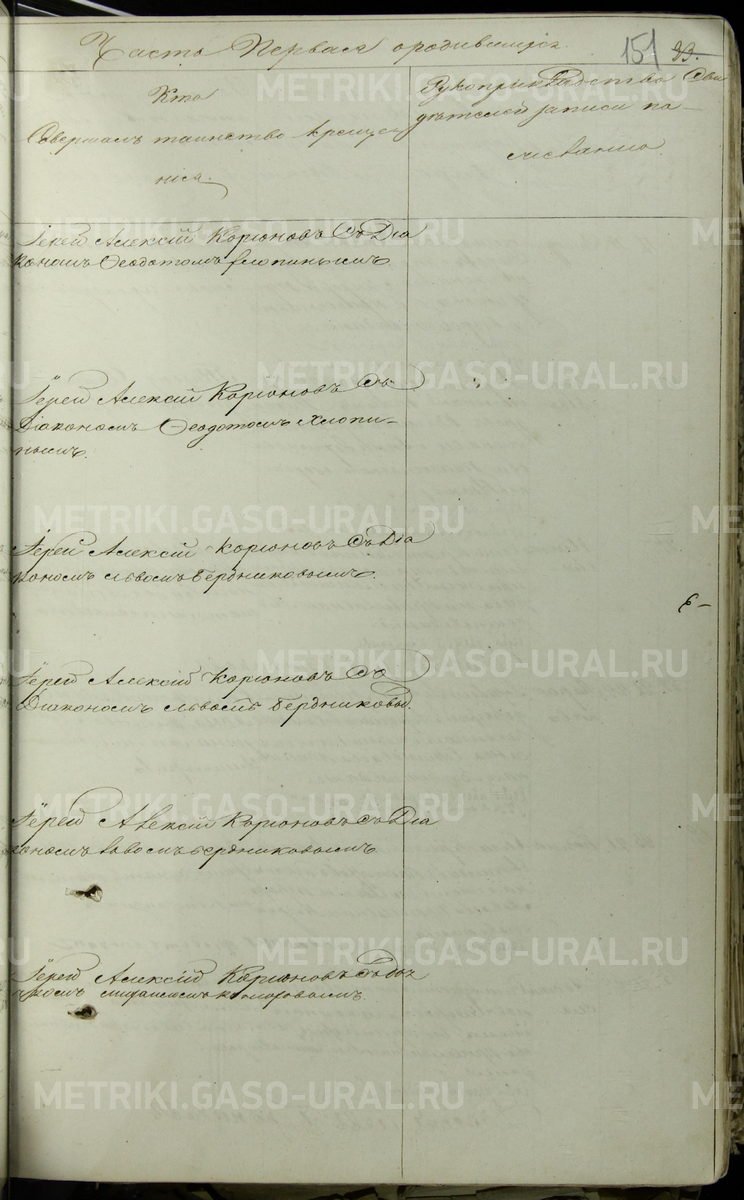 Часть Первая ородившихся.
151 93.
Кто
Совершалъ таинство крещен
нія.
Рукоприкладства Сви
дѣтелей записи по
желанию.
Іерей Алексій Коріоновъ Съ Діа
кономъ Ѳеодотомъ Хлопинымъ
Іерей Алексій Коріоновъ Съ
Діакономъ Ѳеодотомъ Хлопи-
нымъ.
Іерей Алексій Коріоновъ Съ Діа
кономъ Львомъ Бердниковымъ.
6-
Іерей Алексій Коріоновъ Съ
Діакономъ Львомъ Бердниковы.
Іерей Алексій Коріоновъ Съ Діа
кономъ Львомъ Бердниковымъ
Іерей Алексій Коріоновъ Съ дья
комъ
METRIKI.GASO-URAL.RU